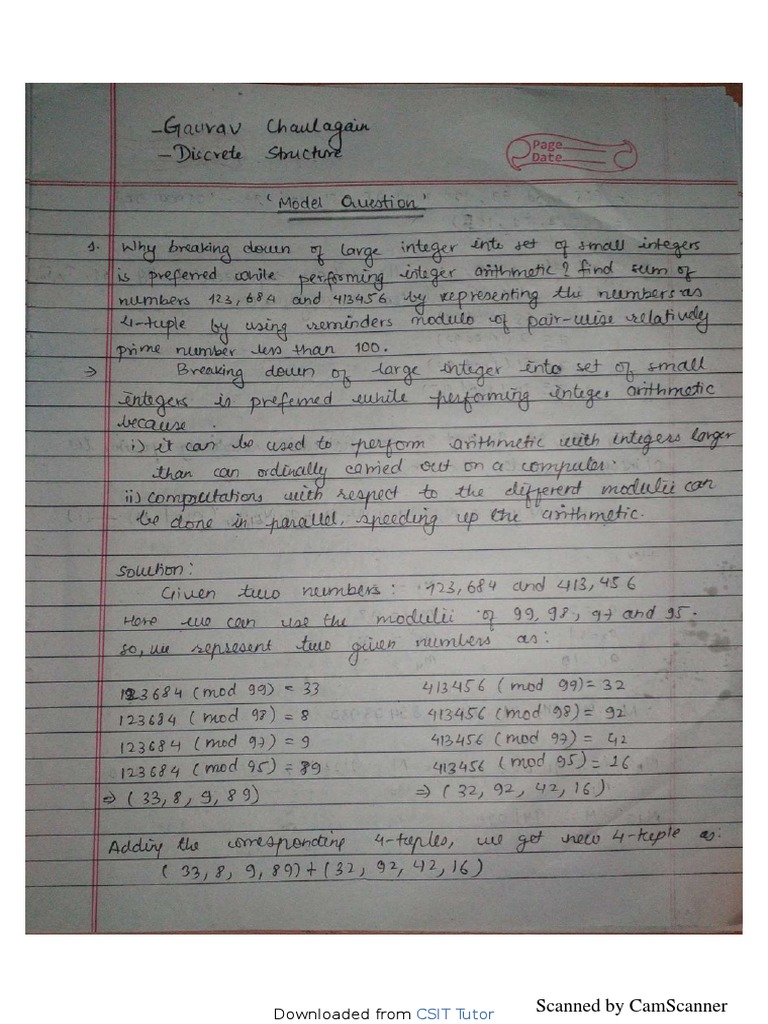 -Gaurav Chaulagain
-Discrete Structure
Page
Date
'Model Question'
1. Why breaking down of large integer into set of small integers
is preferred while performing integer arithmetic? find sum of
numbers 123,684 and 413456 by representing the numbers as
4-tuple by using reminders modulo of pair-wise relatively
prime number less than 100.
→ Breaking down of large integer into set of small
integers is preferred while performing integer arithmetic
because.
i) it can be used to perform arithmetic with integers larger
than can ordinally carried out on a computer.
ii) computations with respect to the different modulii can
be done in parallel, speeding up the arithmetic.
Solution:
Given two numbers: 123,684 and 413,456
Here we can use the modulii of 99, 98, 97 and 95.
so, we represent two given numbers as:
123684 (mod 99) = 33 413456 (mod 99) = 32
123684 (mod 98) = 8 413456 (mod 98) = 92
123684 (mod 97) = 9 413456 (mod 97) = 42
123684 (mod 95) = 89 413456 (mod 95) = 16
⇒ (33, 8, 9, 89) ⇒ (32, 92, 42, 16)
Adding the corresponding 4-tuples, we get new 4-tuple as:
(33, 8, 9, 89) + (32, 92, 42, 16)
Downloaded from CSIT Tutor
Scanned by CamScanner